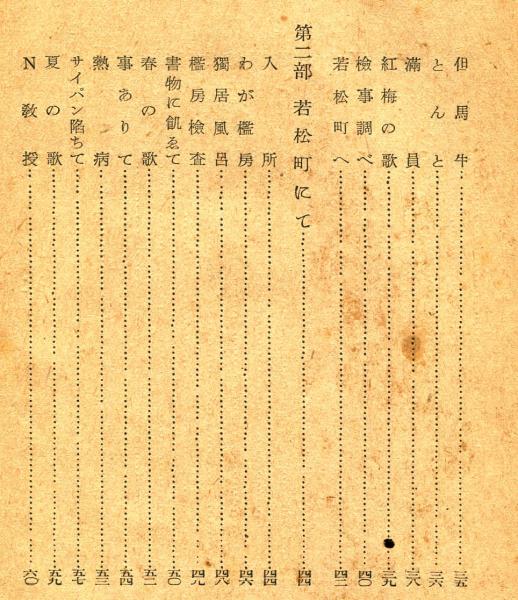 但馬牛……三五
とんと……三六
滿員……三八
紅梅の歌……三九
檢事調べ……四〇
若松町へ……四二
第二部 若松町にて……四四
入所……四四
わが檻房……四六
獨居風呂……四八
檻房檢査……四九
書物に飢ゑて……五〇
春の歌……五二
事ありて……五四
熱病……
サイパン陷ちて……五七
夏の歌……五九
N教授……六〇